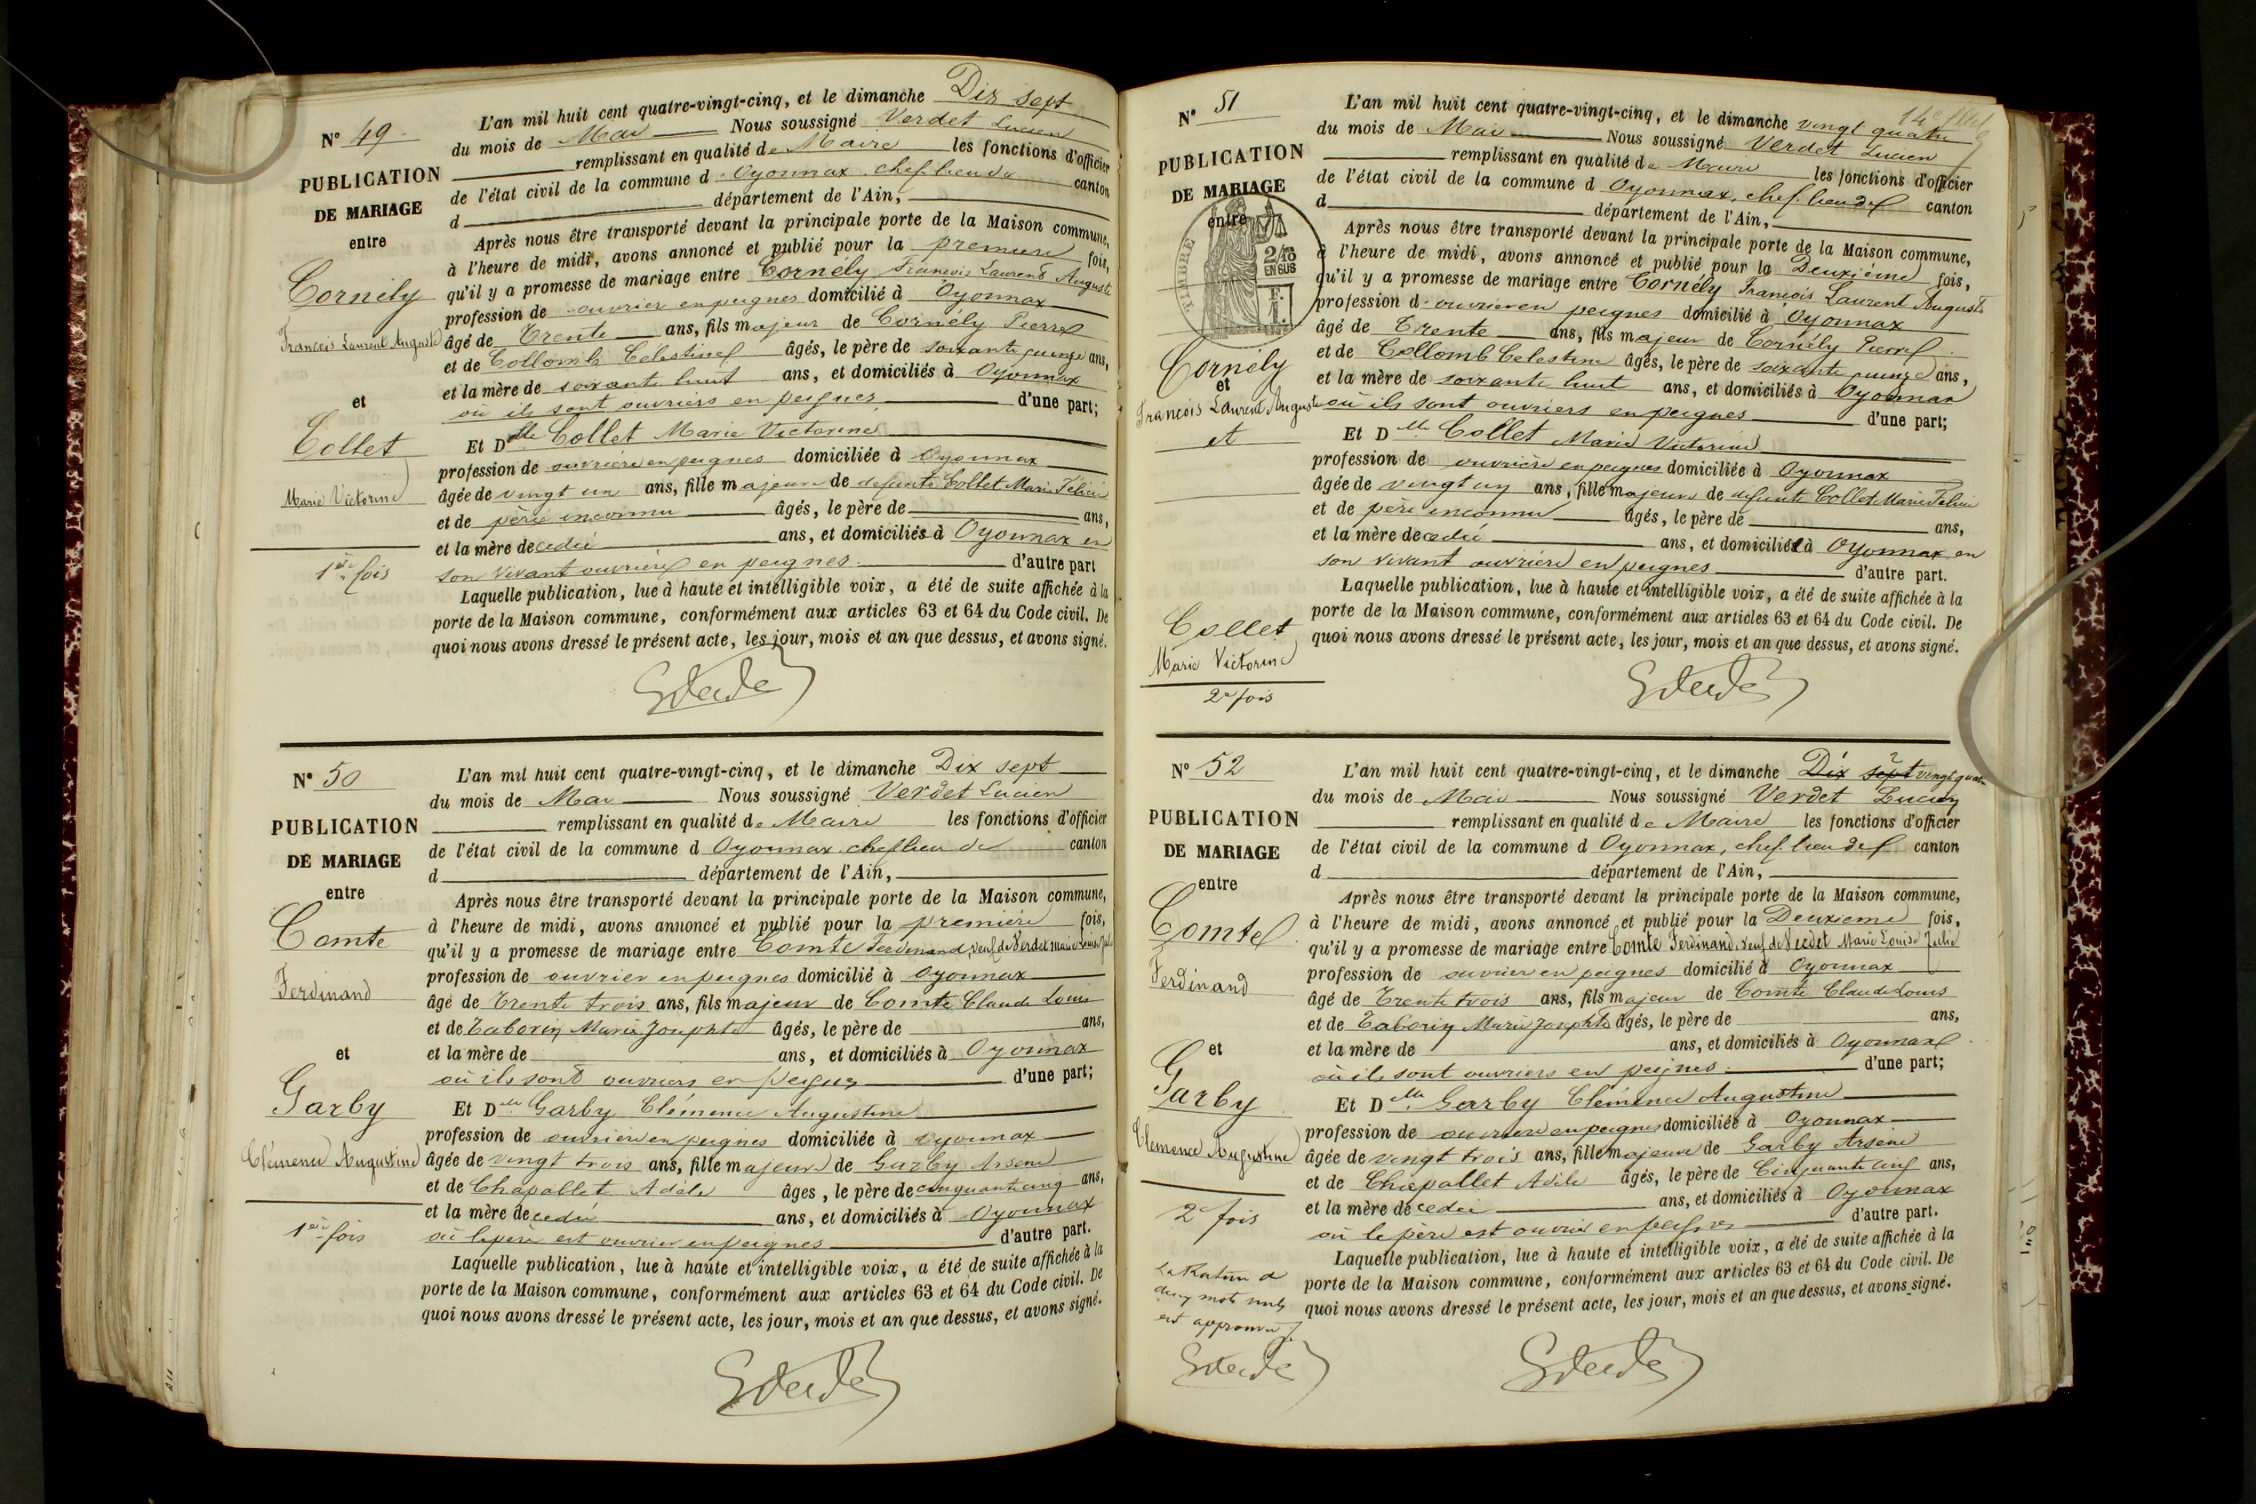 N° 49
PUBLICATION
DE MARIAGE
entre
Cornély
François Laurent Auguste
et
Collet
Marie Victorine
1ère fois
L'an mil huit cent quatre-vingt-cinq, et le dimanche Dix sept
du mois de Mai Nous soussigné Verdet Lucien
remplissant en qualité de Maire les fonctions d'officier
de l'état civil de la commune d'Oyonnax chef lieu de canton
d département de l'Ain,
Après nous être transporté devant la principale porte de la Maison commune,
à l'heure de midi, avons annoncé et publié pour la première fois,
qu'il y a promesse de mariage entre Cornély François Laurent Auguste
profession de ouvrier en peignes domicilié à Oyonnax
âgé de Trente ans, fils majeur de Cornély Pierre
et de Collomb Celestine âgés, le père de soixante quinze ans,
et la mère de soixante huit ans, et domiciliés à Oyonnax
où ils sont ouvriers en peignes d'une part;
Et Dlle Collet Marie Victorine
profession de ouvrière en peignes domiciliée à Oyonnax
âgée de vingt un ans, fille majeure de defunte Collet Marie Felicie
et de père inconnu âgés, le père de ans,
et la mère decedée ans, et domiciliés à Oyonnax en
son vivant ouvrière en peignes d'autre part
Laquelle publication, lue à haute et intelligible voix, a été de suite affichée à la
porte de la Maison commune, conformément aux articles 63 et 64 du Code civil. De
quoi nous avons dressé le présent acte, les jour, mois et an que dessus, et avons signé.
N° 50
PUBLICATION
DE MARIAGE
entre
Comte
Ferdinand
et
Garby
Clémence Augustine
1ère fois
L'an mil huit cent quatre-vingt-cinq, et le dimanche Dix sept
du mois de Mai Nous soussigné Verdet Lucien
remplissant en qualité de Maire les fonctions d'officier
de l'état civil de la commune d Oyonnax chef lieu de canton
d département de l'Ain,
Après nous être transporté devant la principale porte de la Maison commune,
à l'heure de midi, avons annoncé et publié pour la première fois,
qu'il y a promesse de mariage entre Comte Ferdinand, veuf de Verdet Marie Louise Julie
profession de ouvrier en peignes domicilié à Oyonnax
âgé de Trente trois ans, fils majeur de Comte Claude Louis
et de Taborin Marie Josephte âgés, le père de ans,
et la mère de ans, et domiciliés à Oyonnax
où ils sont ouvriers en peignes d'une part;
Et Dlle Garby Clémence Augustine
profession de ouvrière en peignes domiciliée à Oyonnax
âgée de vingt trois ans, fille majeure de Garby Arsène
et de Chapallet Adèle âges, le père de cinquante cinq ans,
et la mère decedée ans, et domiciliés à Oyonnax
où le père est ouvrier en peignes d'autre part.
Laquelle publication, lue à haute et intelligible voix, a été de suite affichée à la
porte de la Maison commune, conformément aux articles 63 et 64 du Code civil. De
quoi nous avons dressé le présent acte, les jour, mois et an que dessus, et avons signé.
N° 51
PUBLICATION
DE MARIAGE
entre
TIMBRE
2/10
EN SUS
F.
1.
Cornély
et
François Laurent Auguste
et
Collet
Marie Victorine
2e fois
L'an mil huit cent quatre-vingt-cinq, et le dimanche vingt quatre
du mois de Mai Nous soussigné Verdet Lucien
remplissant en qualité de Maire les fonctions d'officier
de l'état civil de la commune d Oyonnax, chef lieu de canton
d département de l'Ain,
Après nous être transporté devant la principale porte de la Maison commune,
à l'heure de midi, avons annoncé et publié pour la Deuxième fois,
qu'il y a promesse de mariage entre Cornély François Laurent Auguste
profession d'ouvrier en peignes domicilié à Oyonnax
âgé de Trente ans, fils majeur de Cornély Pierre
et de Collomb Celestine âgés, le père de soixante quinze ans,
et la mère de soixante huit ans, et domiciliés à Oyonnax
où ils sont ouvriers en peignes d'une part;
Et Dlle Collet Marie Victorine
profession de ouvrière en peignes domiciliée à Oyonnax
âgée de vingt un ans, fille majeure de defunte Collet Marie Felicie
et de père inconnu âgés, le père de ans,
et la mère decedée ans, et domiciliée à Oyonnax en
son vivant ouvrière en peignes d'autre part.
Laquelle publication, lue à haute et intelligible voix, a été de suite affichée à la
porte de la Maison commune, conformément aux articles 63 et 64 du Code civil. De
quoi nous avons dressé le présent acte, les jour, mois et an que dessus, et avons signé.
N° 52
PUBLICATION
DE MARIAGE
entre
Comte
Ferdinand
et
Garby
Clémence Augustine
2e fois
La Rature de
deux mots nuls
est approuvée
L'an mil huit cent quatre-vingt-cinq, et le dimanche Dix sept vingt quatre
du mois de Mai Nous soussigné Verdet Lucien
remplissant en qualité de Maire les fonctions d'officier
de l'état civil de la commune d Oyonnax, chef lieu de canton
d département de l'Ain,
Après nous être transporté devant la principale porte de la Maison commune,
à l'heure de midi, avons annoncé et publié pour la Deuxieme fois,
qu'il y a promesse de mariage entre Comte Ferdinand, veuf de Verdet Marie Louise Julie
profession de ouvrier en peignes domicilié à Oyonnax
âgé de Trente trois ans, fils majeur de Comte Claude Louis
et de Taborin Marie Josephte âgés, le père de ans,
et la mère de ans, et domiciliés à Oyonnax
où ils sont ouvriers en peignes d'une part;
Et Dlle Garby Clémence Augustine
profession de ouvrière en peignes domiciliée à Oyonnax
âgée de vingt trois ans, fille majeure de Garby Arsène
et de Chapallet Adèle âgés, le père de Cinquante cinq ans,
et la mère decedée ans, et domiciliés à Oyonnax
où le père est ouvrier en peignes d'autre part.
Laquelle publication, lue à haute et intelligible voix, a été de suite affichée à la
porte de la Maison commune, conformément aux articles 63 et 64 du Code civil. De
quoi nous avons dressé le présent acte, les jour, mois et an que dessus, et avons signé.